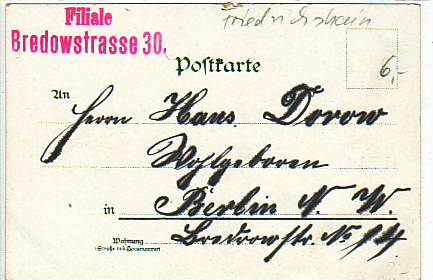 Filiale
Bredowstrasse 30.
Friedrichshain
Postkarte
6,-
An
Herrn Hans Dorow
Wohlgeboren
in Berlin N. W.
Wohnung
(Straße und Hausnummer)
Bredowstr. No